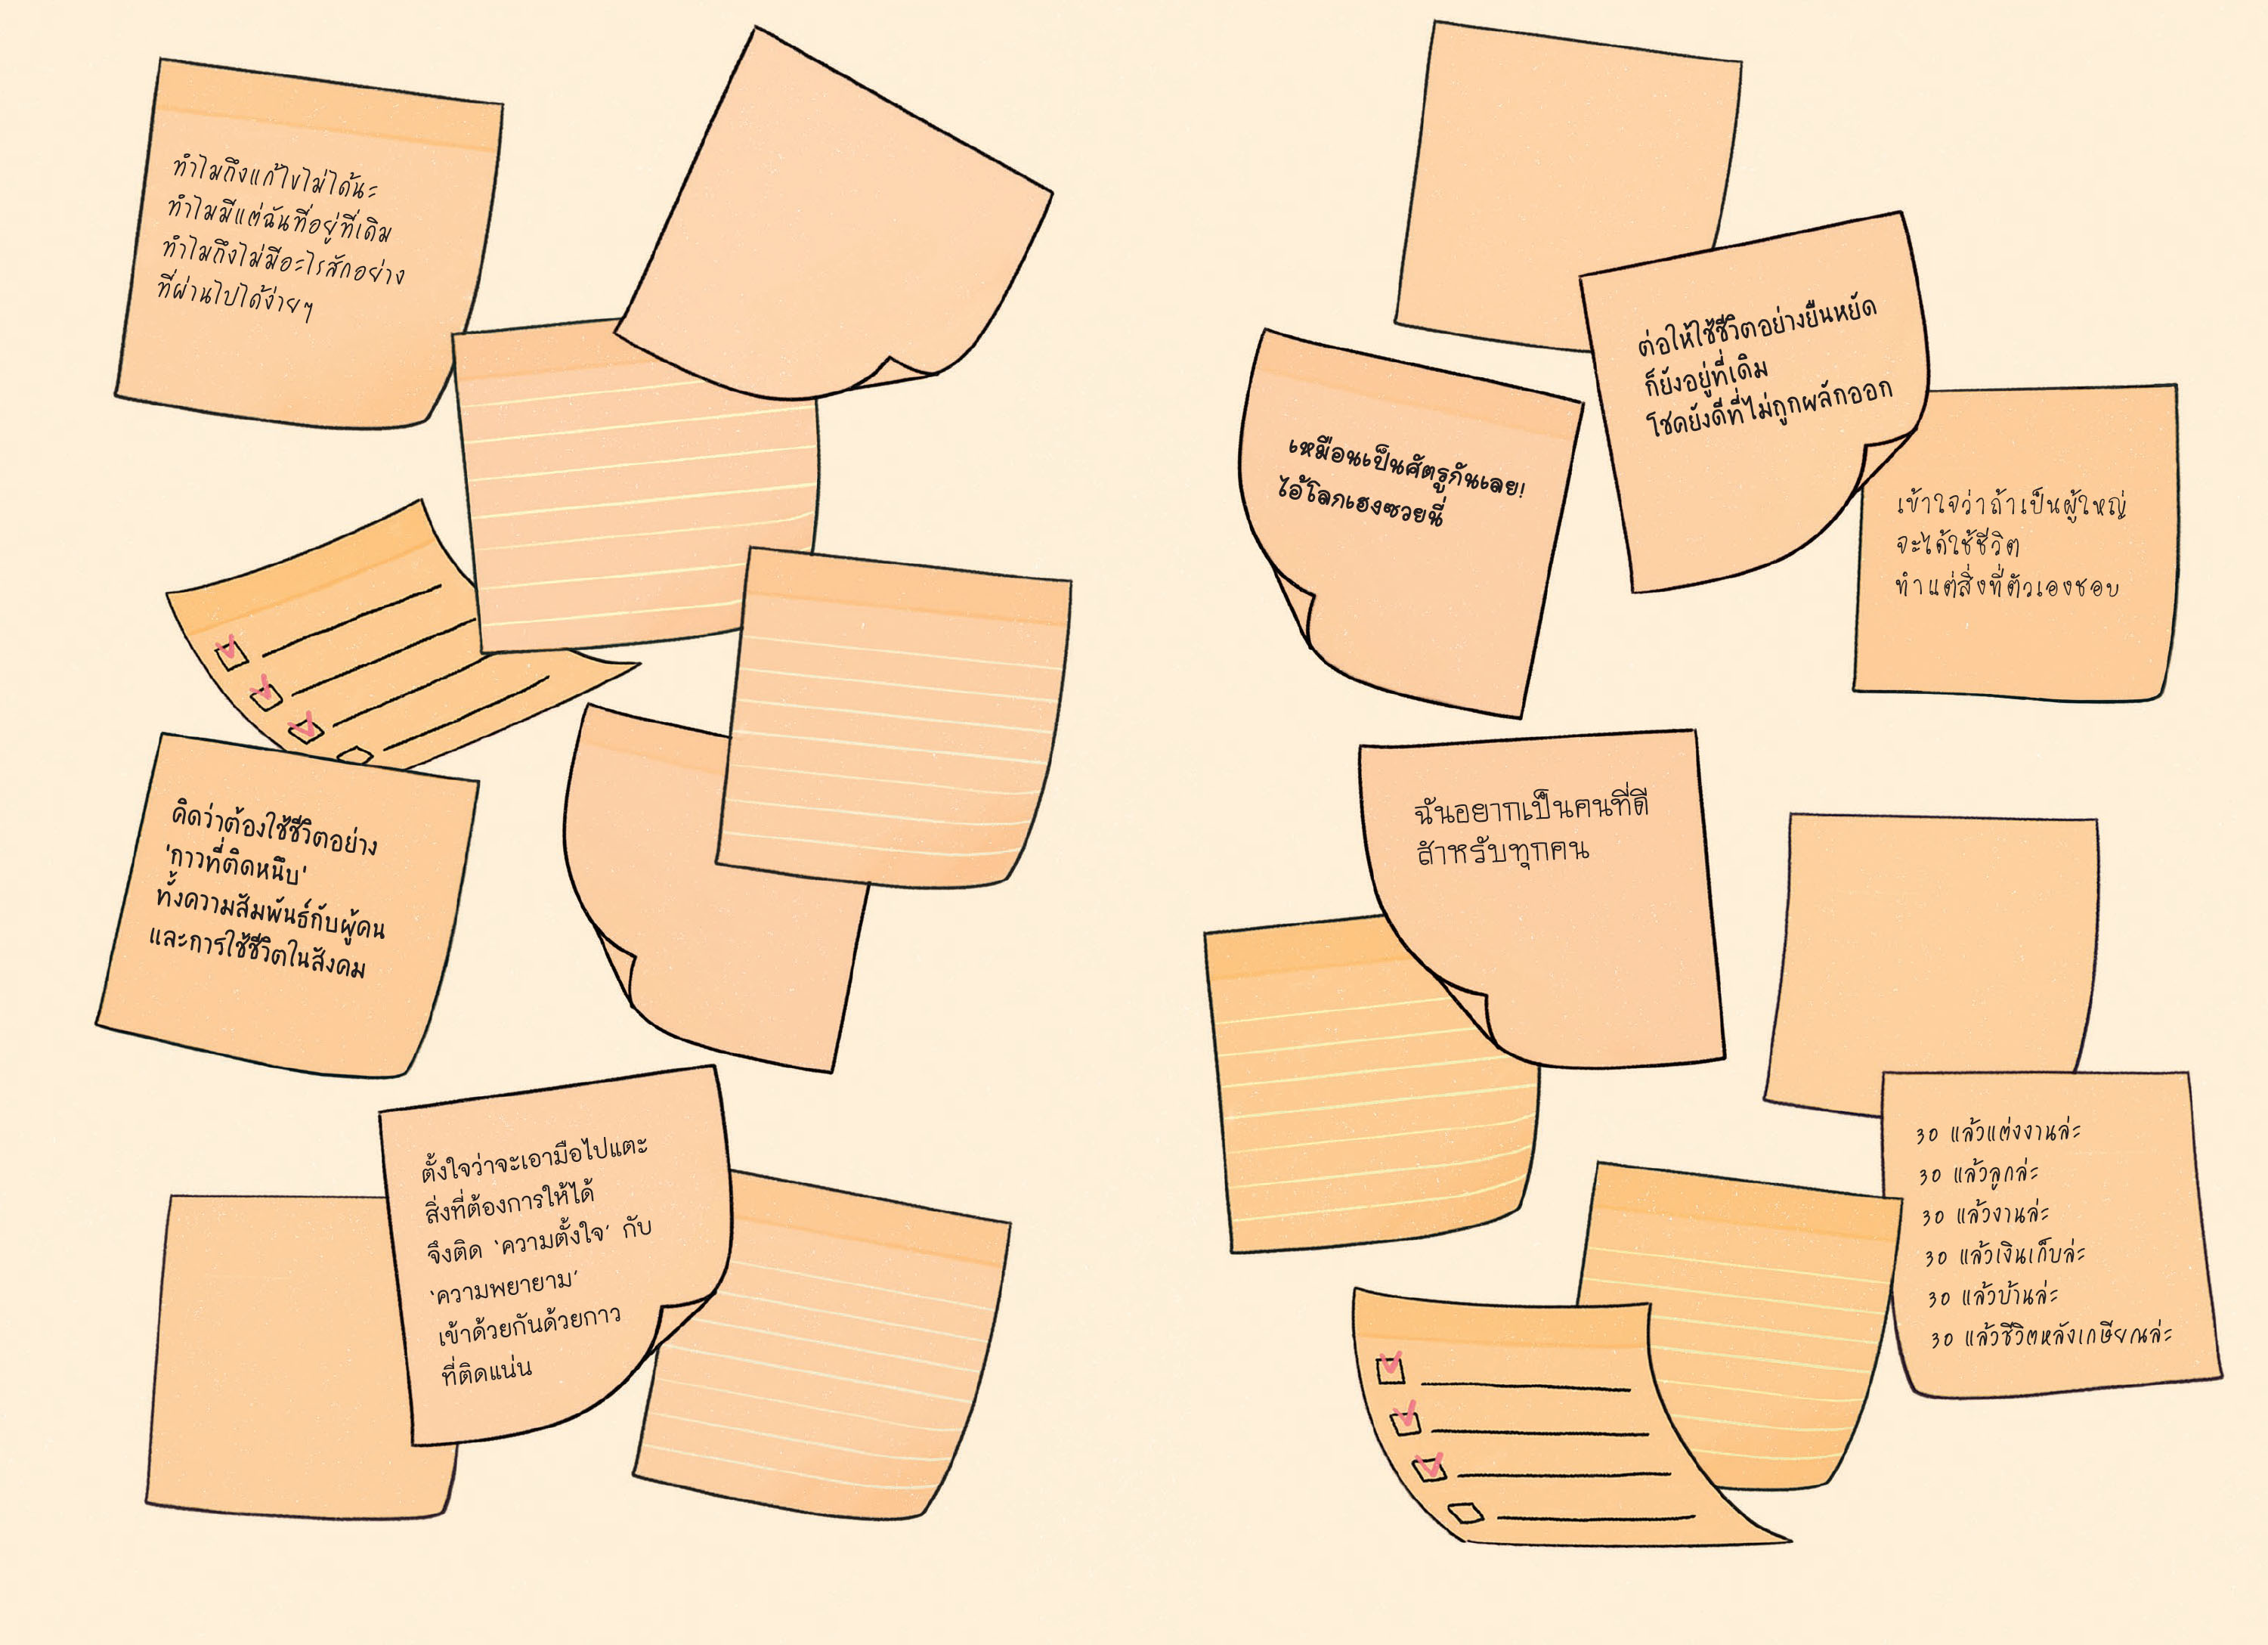 ทำไมถึงแก้ไขไม่ได้นะ
ทำไมมีแต่ฉันที่อยู่ที่เดิม
ทำไมถึงไม่มีอะไรสักอย่าง
ที่ผ่านไปได้ง่ายๆ
คิดว่าต้องใช้ชีวิตอย่าง
'กาวที่ติดหนึบ'
ทั้งความสัมพันธ์กับผู้คน
และการใช้ชีวิตในสังคม
ตั้งใจว่าจะเอามือไปแตะ
สิ่งที่ต้องการให้ได้
จึงติด 'ความตั้งใจ' กับ
'ความพยายาม'
เข้าด้วยกันด้วยกาว
ที่ติดแน่น
ต่อให้ใช้ชีวิตอย่างยืนหยัด
ก็ยังอยู่ที่เดิม
โชคยังดีที่ไม่ถูกผลักออก
เหมือนเป็นศัตรูกันเลย!
ไอ้โลกเฮงซวยนี่
เข้าใจว่าถ้าเป็นผู้ใหญ่
จะได้ใช้ชีวิต
ทำแต่สิ่งที่ตัวเองชอบ
ฉันอยากเป็นคนที่ดี
สำหรับทุกคน
30 แล้วแต่งงานล่ะ
30 แล้วลูกล่ะ
30 แล้วงานล่ะ
30 แล้วเงินเก็บล่ะ
30 แล้วบ้านล่ะ
30 แล้วชีวิตหลังเกษียณล่ะ